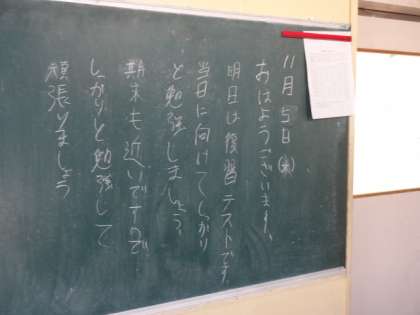 11月5日(木)
おはようございます。
明日は復習テストです
当日に向けてしっかり
と勉強しましょう
期末も近いですので
しっかりと勉強して
頑張りましょう